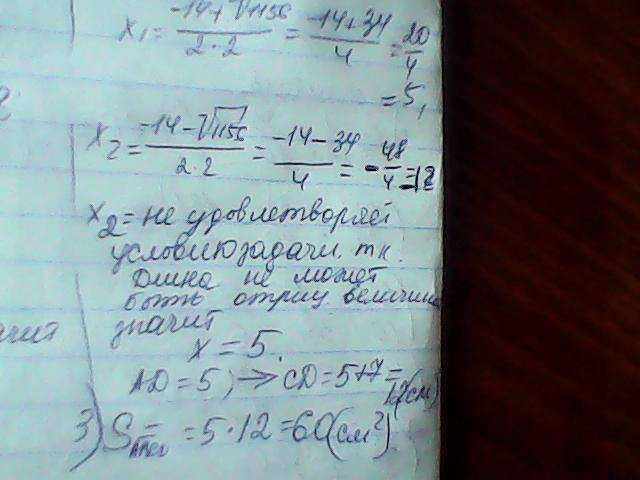 x₁ = (-14+√1156)/(2·2) = (-14+34)/4 = 20/4
= 5,
x₂ = (-14-√1156)/(2·2) = (-14-34)/4 = -48/4 = -12
x₂ = не удовлетворяет
условию задачи, т.к.
длина не может
быть отриц. величина
ачит
значит
x = 5.
AD = 5, → CD = 5+7 =
12(см)
3) S = 5·12 = 60(см²)